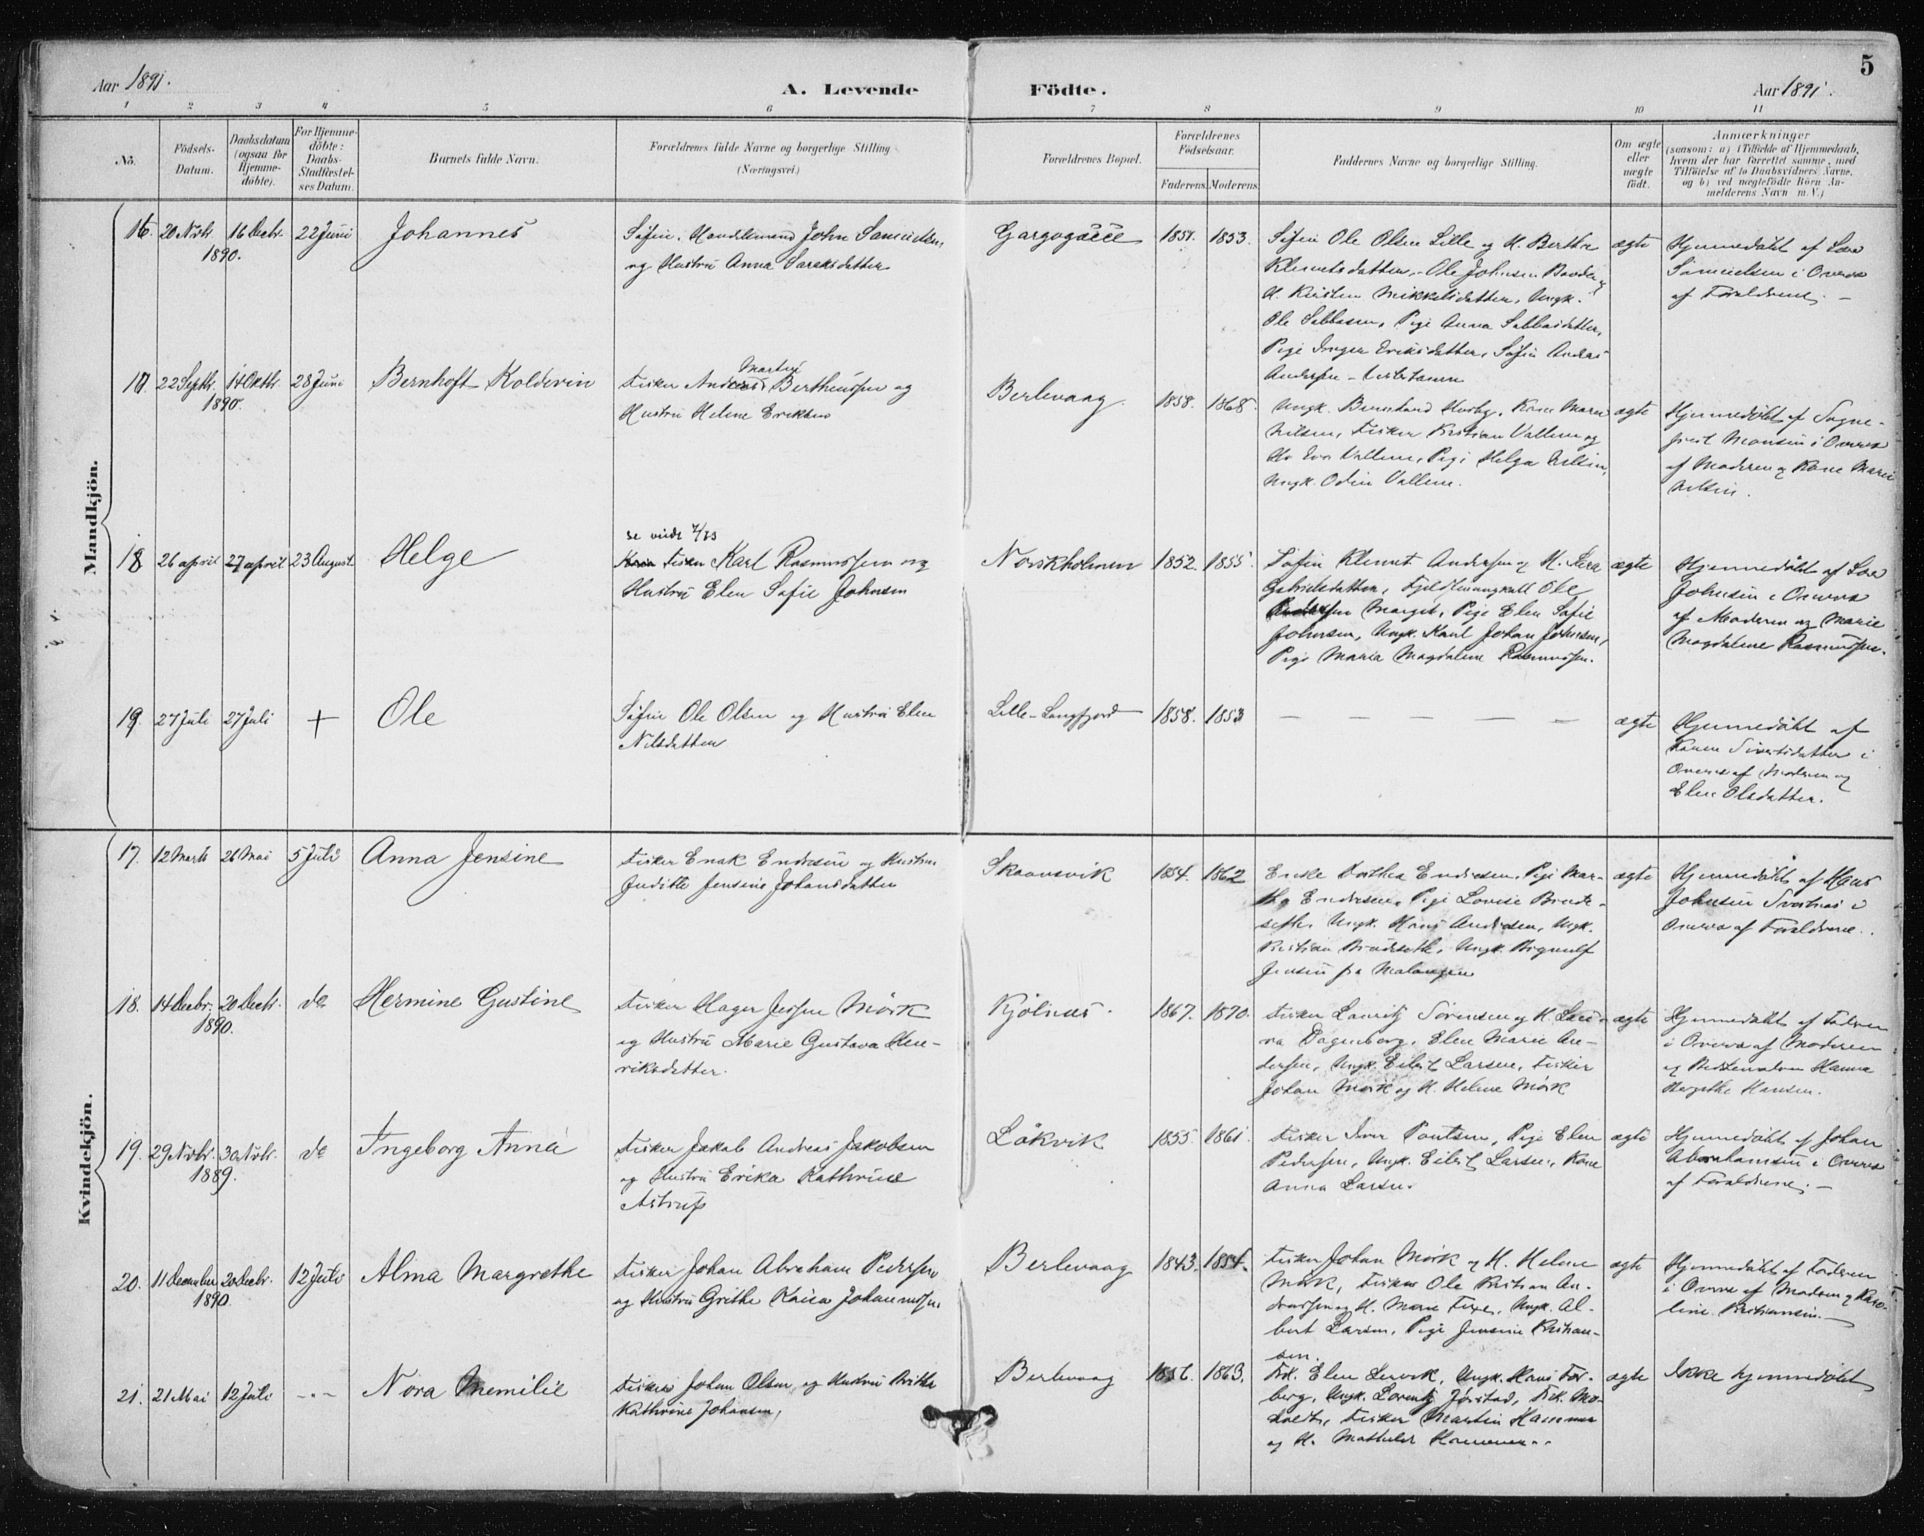 5
Aar 1891.
A. Levende Födte.
Aar 1891.
1 2 3 4 5 6 7 8 9 10 11
No.
Födsels-
Datum.
Daabsdatum
(ogsaa for
Hjemme-
döbte).
For Hjemme-
döbte:
Daabs-
Stadfæstel-
ses Datum.
Barnets fulde Navn.
Forældrenes fulde Navne og borgerlige Stilling
(Næringsvei.)
Forældrenes Bopæl.
Forældrenes
Födselsaar.
Faderens. Moderens.
Faddernes Navne og borgerlige Stilling.
Om ægte
eller
uægte
födt.
Anmærkninger
(saasom: a) i Tilfælde af Hjemmedaab,
hvem der har forrettet samme, med
Tilföielse af to Daabsvidners Navne,
og b) ved uægtefödte Börn An-
melderens Navn m. V.)
Mandkjön.
16. 20 Novbr. 1890. 16 Decbr. 22 Juni Johannes
Søfin. John Samuelsen
og Hustru Anna
1857. 1853.
Søfin Ole Olsen Lille og H. Berthe
Klemetsdatter, Ole Johnsen
H. Kirsten Mikkelsdatter, Ungk.
Ole Sabbasen, Pige Anna Sabbasdatter,
Pige Inger Eriksdatter, Søfin Anders
Andersen
ægte
Hjemmedøbt af
Samuelsen i Overv
af Forældrene.
17. 22 Septbr. 1890. 14 Oktbr. 28 Juni Bernhoft Kolderin
Martin
Fisker Berthinssen og
Hustru Helene Eriksen
Berlevaag. 1858. 1868.
Ungk. Bernhard Husby, Kone Marie
Nilsen, Fisker Kristian Vallem og
H. Eva Vallem, Pige Helga Nilsen,
Ungk. Odin Vallem.
ægte
Hjemmedøbt af Sogne-
prest i Overv
af Moderen og Kone Marie
Nilsen.
18 26 april 27 april 23 August Helge
Fisker Karl Rasmussen og
Hustru Elen Sofie Johnsen
Norskholmen 1852. 1855.
Søfin Klemet Andersen og H.
Gabrielsdatter, Ole
Pige Elen Sofie
Johnsen, Ungk. Karl Johan Johnsen,
Pige Maria Magdalene Rasmussen.
ægte
Hjemmedøbt af
Johnsen i Overv
af Moderen og Marie
Magdalene Rasmussen.
19. 27 Juli 27 Juli + Ole
Søfin Ole Olsen og Hustru Elen
Nilsdatter
Lille-Langfjord 1858. 1853
— — — — —
ægte
Hjemmedøbt af
Karen Sivertsdatter i
Overv af Moderen og
Elen Olsdatter.
Kvindekjön.
17. 12 Marts 26 Mai 5 Juli Anna Jensine
Fisker Enok Endresen og Hustru
Judithe Jensine Johansdatter
1854. 1862
Enke Dorthea Endresen, Pige Mar-
tha Endresen, Pige Lovise
Ungk. Hans Andersen, Ungk.
Kristian Ungk.
Jensen fra Malangen
ægte
Hjemmedøbt af Hans
Johnsen i
Overv af Forældrene.
18. 14 Decbr. 1890. 20 Decbr. do Hermine Gustine
Fisker Hager Jessen Mörk
og Hustru Marie Gustava Hen-
riksdatter.
Kjölnes. 1867. 1870.
Fisker Lauritz Sörensen og H. Lau-
ra Dagenborg, Elen Marie An-
dersen, Ungk. Eilert Larsen, Fisker
Johan Mörk og H. Helene Mörk
ægte
Hjemmedøbt af Faderen
i Overv af Moderen
og Bedstemoderen Hanna
Hansen.
19. 29 Novbr. 1889. 30 Novbr. do Ingeborg Anna
Fisker Jakob Andreas Jakobsen
og Hustru Erika Kathrine
Astrup
Lökvik 1855. 1861.
Fisker Iver Pige Elen
Pedersen, Ungk. Eilert Larsen, Kone
Anna Larsen.
ægte
Hjemmedøbt af Johan
Abrahamsen i Overv
af Forældrene.
20. 11 December 1890. 20 Decbr. 12 Juli Alma Margrethe
Fisker Johan Abraham Pedersen
og Hustru Grethe Kaisa Johannessen
Berlevaag 1843. 1854.
Fisker Johan Mörk og H. Helene
Mörk, Fisker Ole Kristian An-
dreassen og H. Marie Ungk. Al-
bert Larsen, Pige Jensine Kristian-
sen.
ægte
Hjemmedøbt af Faderen
i Overv af Moderen og Karo-
line Kristiansen.
21. 21 Mai 12 Juli Nora Memilie
Fisker Johan Olsen og Hustru
Kathrine Johansen,
Berlevaag 1856. 1863.
Frk. Elen Lervik, Ungk. Hans
Ungk. Lorentz Jörstad, Frk.
Fisker Martin Hammer
og H. Mathilde Hammer.
ægte Ikke hjemmedøbt